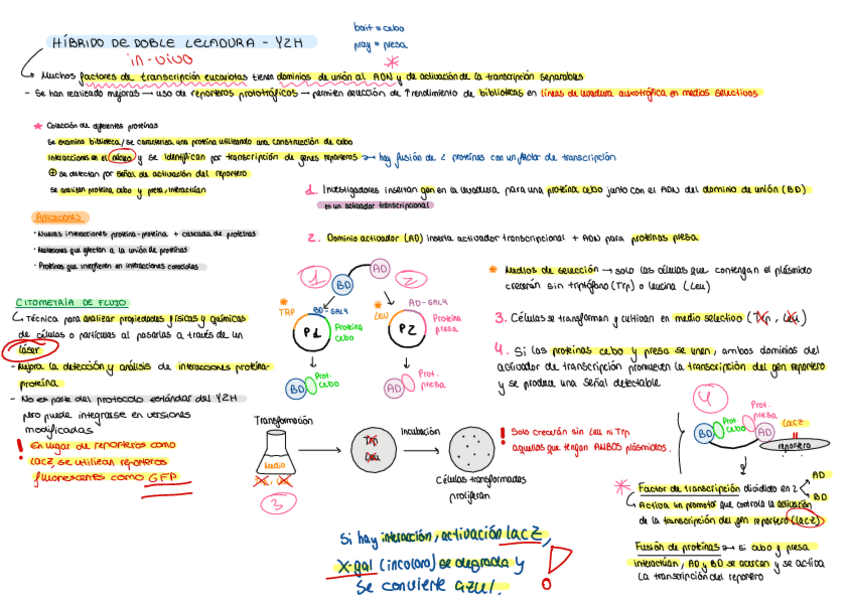 HÍBRIDO DE DOBLE LELADURA - Y2H
bait = cebo
pray = presa
in-vivo
*
Muchos factores de transcripción eucariotas tienen dominios de unión al ADN y de activación de la transcripción separables
- Se han realizado mejoras → uso de reporteros prototróficos → permiten selección de ↑ rendimiento de bibliotecas en líneas de levadura auxotrófica en medios selectivos
* Colección de diferentes proteínas
Se examina biblioteca / se caracteriza una proteína utilizando una construcción de cebo
Interacciones en el núcleo y se identifican por transcripción de genes reporteros → hay fusión de 2 proteínas con un factor de transcripción
⊕ se detectan por señal de activación del reportero
se analizan proteína cebo y presa, interactúan
1. Investigadores insertan gen en la levadura para una proteína cebo junto con el ADN del dominio de unión (BD)
en un activador transcripcional
Aplicaciones
- Nuevas interacciones proteína-proteína + cascada de proteínas
- Mutaciones que afectan a la unión de proteínas
- Proteínas que interfieren en interacciones conocidas
2. Dominio activador (AD) inserta activador transcripcional + ADN para proteínas presa
1
BD
AD
2
* TRP
BD-GAL4
P1
Proteína cebo
BD
Prot. cebo
* LEU
AD-GAL4
P2
Proteína presa
AD
Prot. presa
* Medios de selección → solo las células que contengan el plásmido
crecerán sin triptófano (Trp) o leucina (Leu)
3. Células se transforman y cultivan en medio selectivo (Trp, Leu)
4. Si las proteínas cebo y presa se unen, ambos dominios del
activador de transcripción promueven la transcripción del gen reportero
y se produce una señal detectable
CITOMETRÍA DE FLUJO
Técnica para analizar propiedades físicas y químicas
de células o partículas al pasarlas a través de un
láser
- Mejora la detección y análisis de interacciones proteína-
proteína
- No es parte del protocolo estándar del Y2H
pero puede integrarse en versiones
modificadas
! En lugar de reporteros como
lacZ, se utilizan reporteros
fluorescentes como GFP
Transformación
Medio
3
Trp
Leu
Incubación
Células transformadas
proliferan
! Solo crecerán sin Leu ni Trp
aquellos que tengan AMBOS plásmidos.
4
BD
Prot cebo
Prot. presa
AD
lacZ
reportero
* Factor de transcripción dividido en 2
AD
BD
Activa un promotor que controla la activación
de la transcripción del gen reportero (lacZ)
Fusión de proteínas → si cebo y presa
interactúan, AD y BD se acercan y se activa
la transcripción del reportero
Si hay interacción, activación lacZ,
X-gal (incoloro) se degrada y
se convierte azul. !